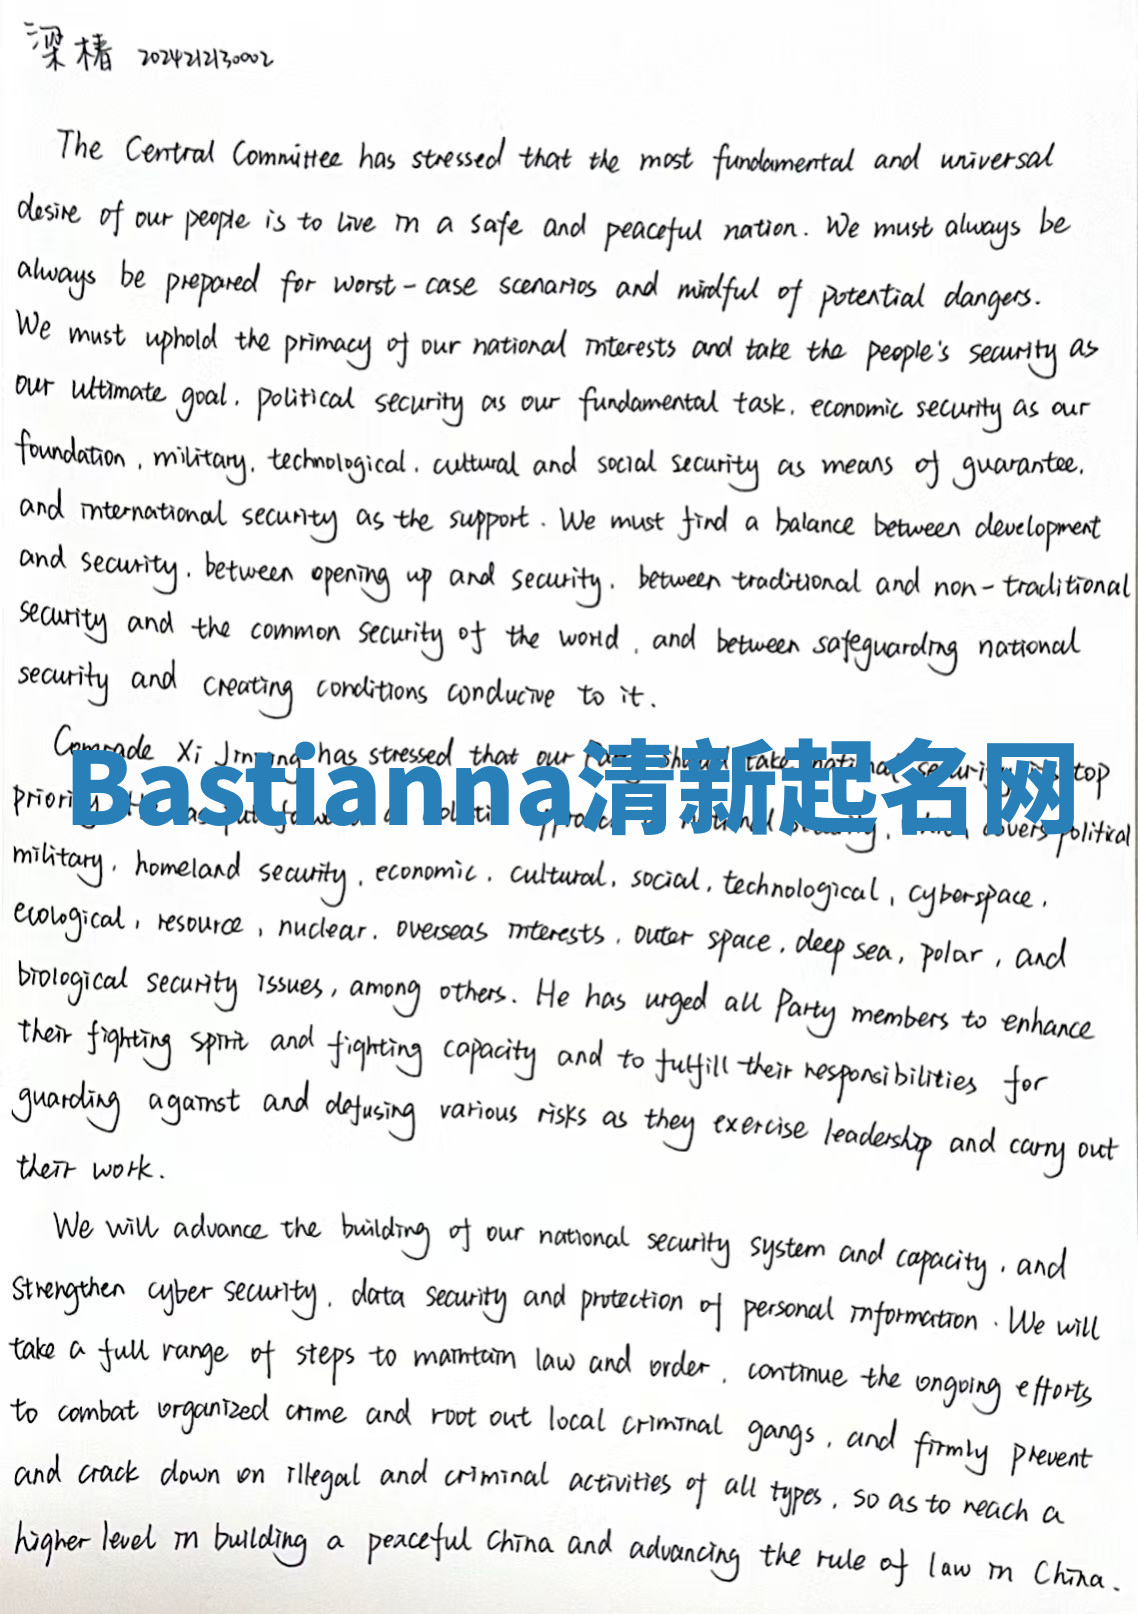 梁椿 2024212130002
The Central Committee has stressed that the most fundamental and universal
desire of our people is to live in a safe and peaceful nation. We must always be
always be prepared for worst-case scenarios and mindful of potential dangers.
We must uphold the primacy of our national interests and take the people's security as
our ultimate goal, political security as our fundamental task, economic security as our
foundation, military, technological, cultural and social security as means of guarantee,
and international security as the support. We must find a balance between development
and security, between opening up and security, between traditional and non-traditional
security and the common security of the world, and between safeguarding national
security and creating conditions conducive to it.
Comrade Xi Jinping has stressed that our Party should take national security top
Bastianna清新起名网
priority. put covers political
military, homeland security, economic, cultural, social, technological, cyberspace,
ecological, resource, nuclear, overseas interests, outer space, deep sea, polar, and
biological security issues, among others. He has urged all Party members to enhance
their fighting spirit and fighting capacity and to fulfill their responsibilities for
guarding against and defusing various risks as they exercise leadership and carry out
their work.
We will advance the building of our national security system and capacity, and
strengthen cyber security, data security and protection of personal information. We will
take a full range of steps to maintain law and order, continue the ongoing efforts
to combat organized crime and root out local criminal gangs, and firmly prevent
and crack down on illegal and criminal activities of all types, so as to reach a
higher level in building a peaceful China and advancing the rule of law in China.